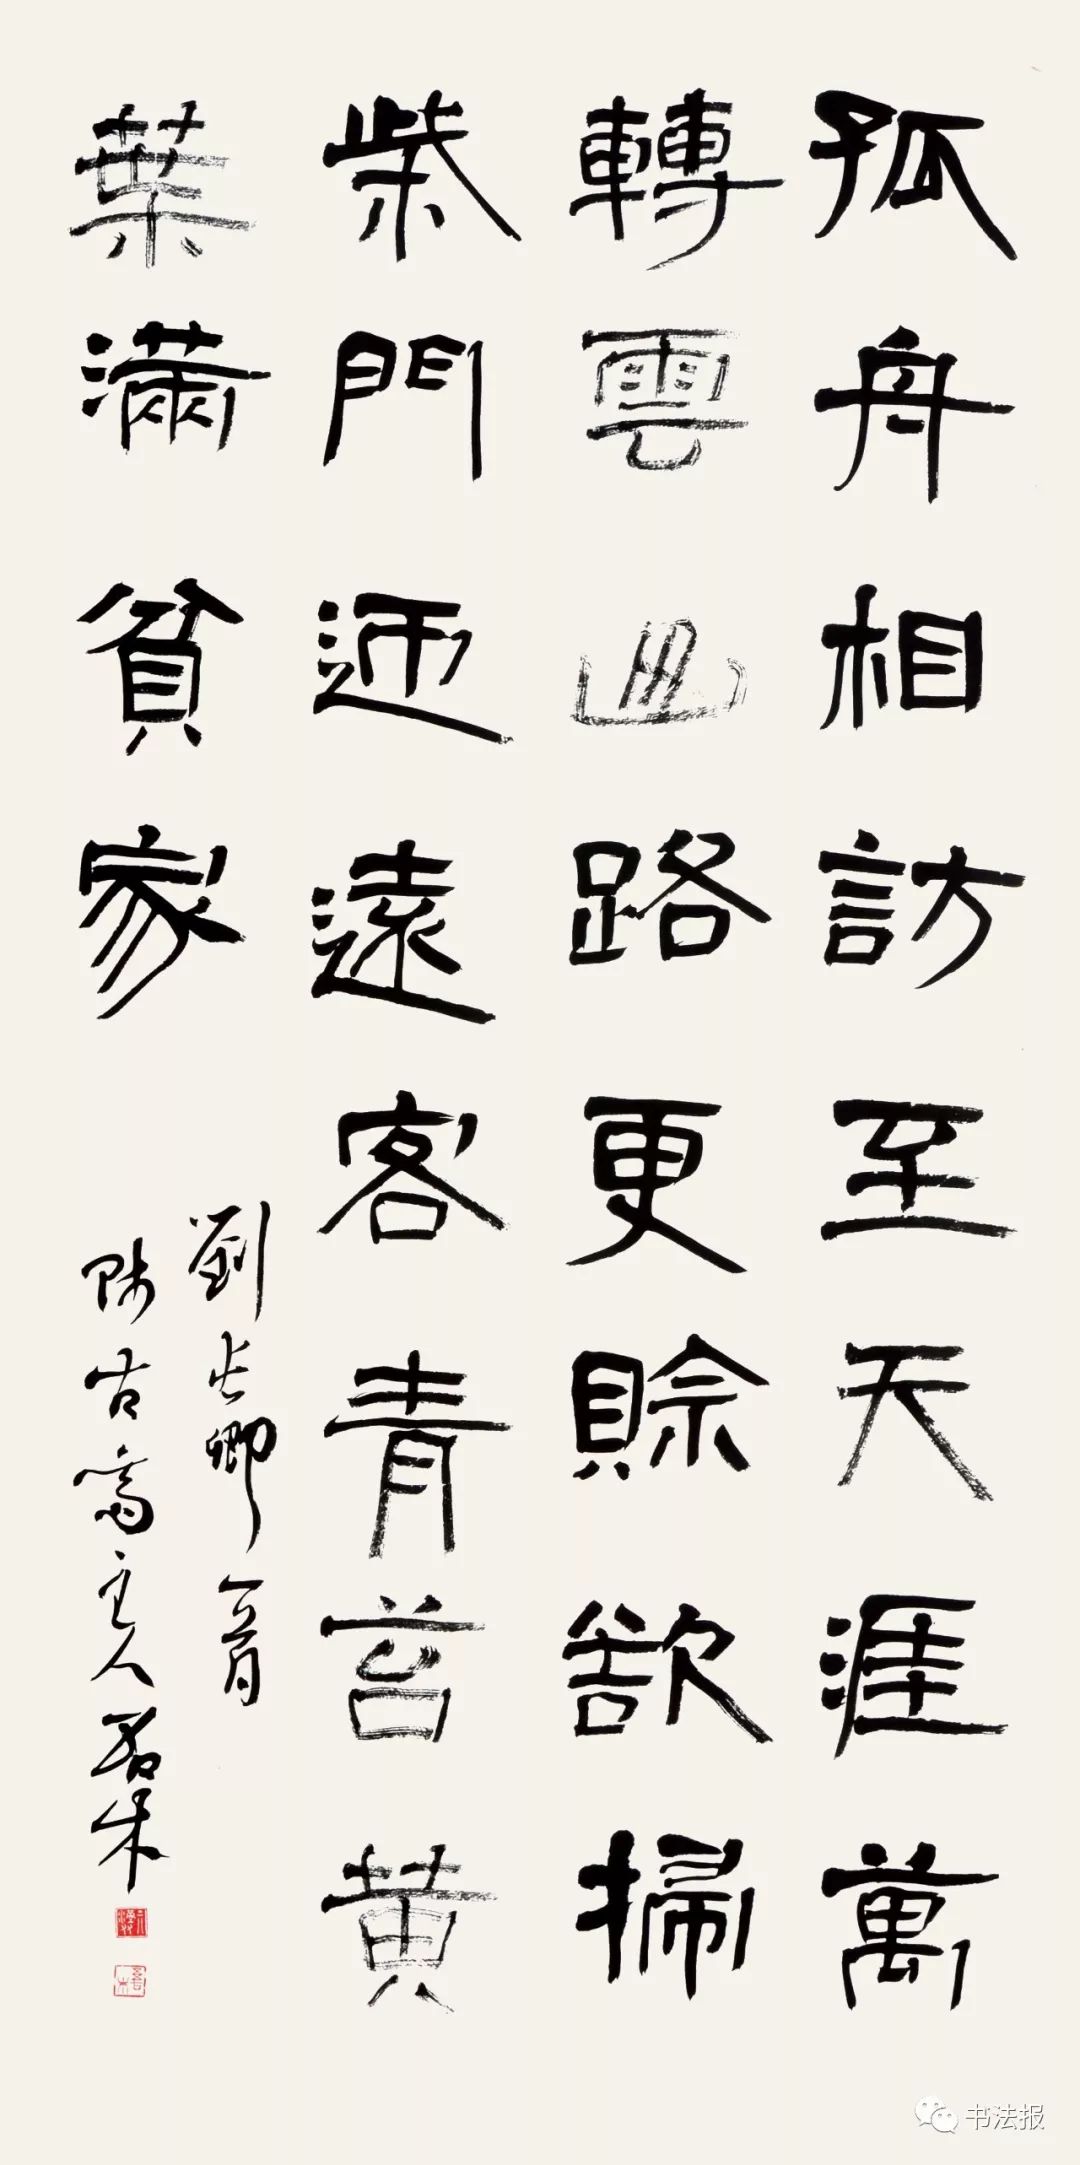 孤舟相訪至天涯萬
轉雲山路更賒欲掃
柴門迎遠客青苔黄
葉滿貧家
劉長卿一首
師古齋主人
书法报